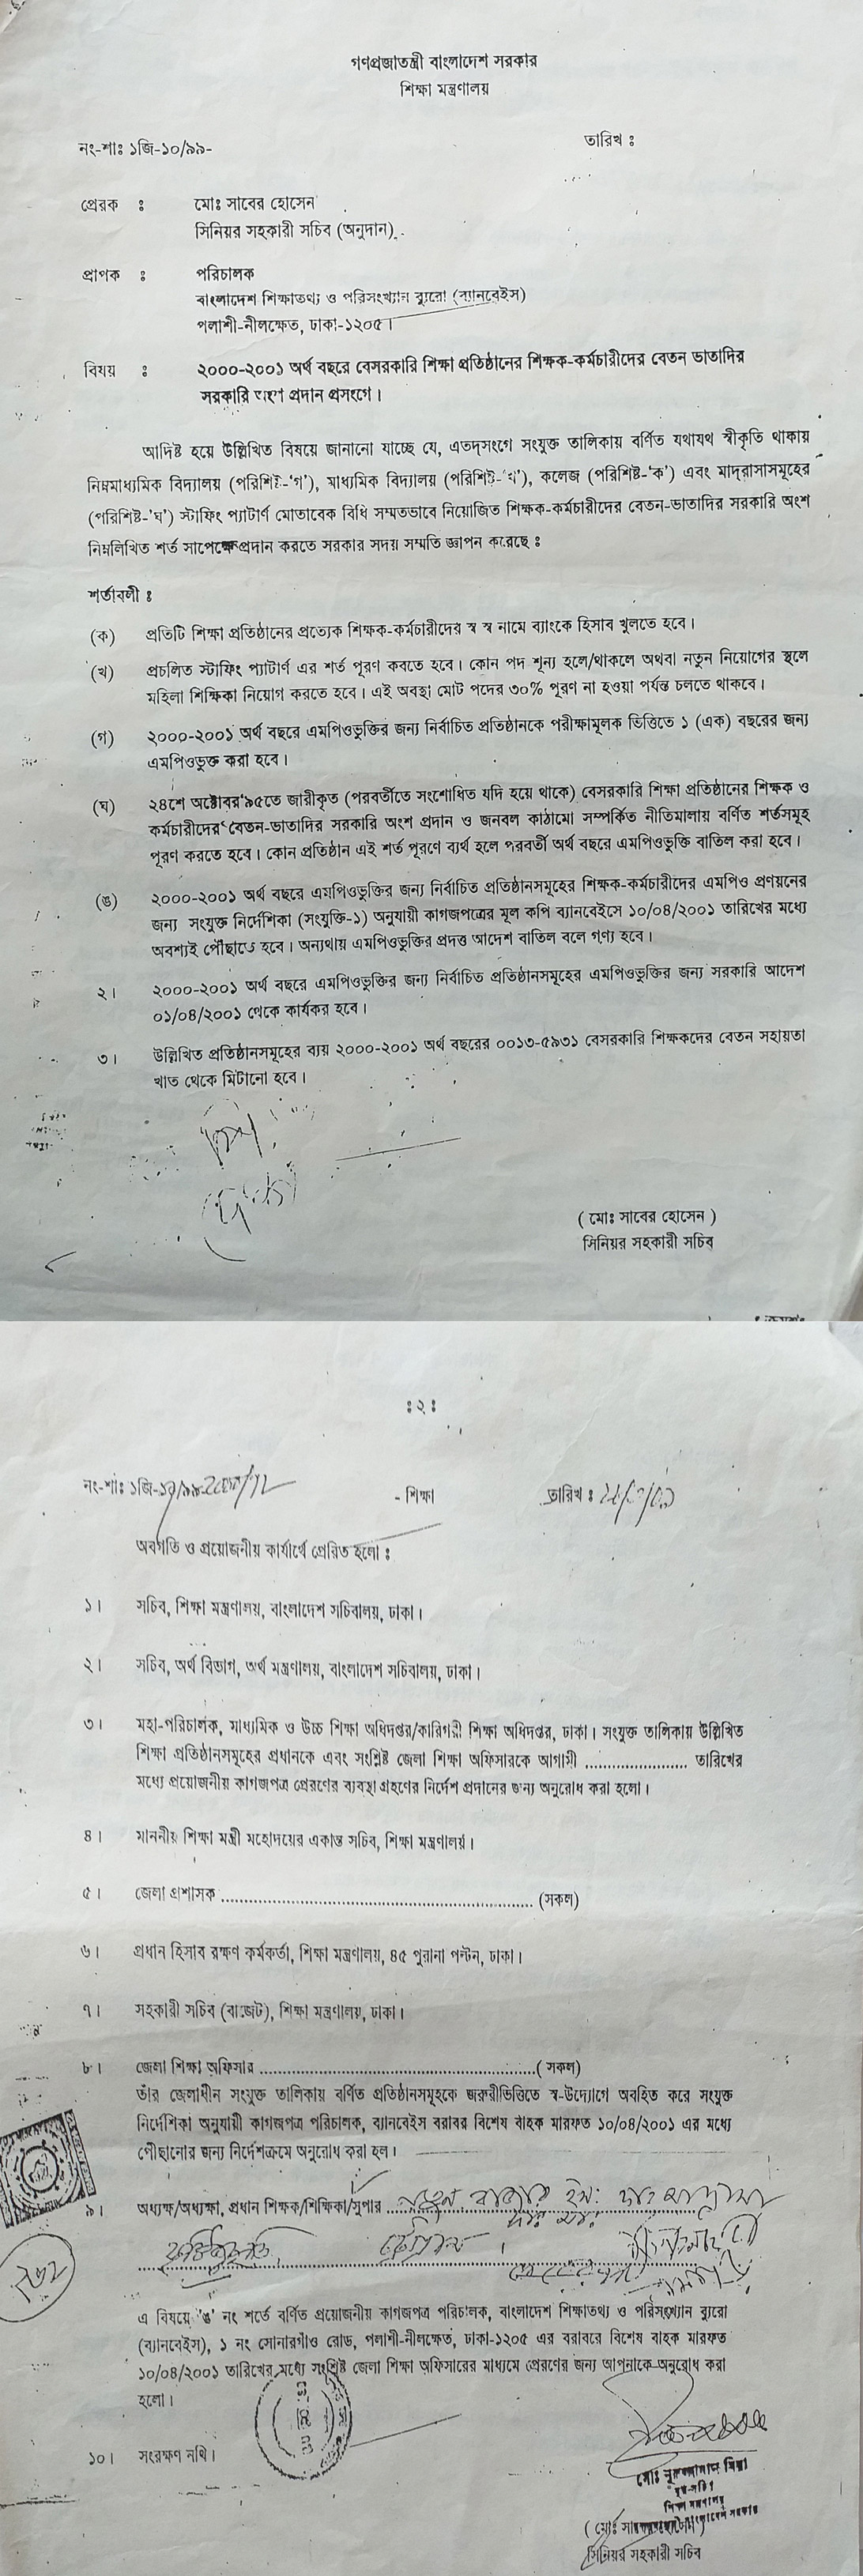 গণপ্রজাতন্ত্রী বাংলাদেশ সরকার
শিক্ষা মন্ত্রণালয়
নং-শাঃ ১জি-১০/৯৯-
তারিখ :
প্রেরক : মোঃ সাবের হোসেন
সিনিয়র সহকারী সচিব (অনুদান)
প্রাপক : পরিচালক
বাংলাদেশ শিক্ষাতথ্য ও পরিসংখ্যান ব্যুরো (ব্যানবেইস)
পলাশী-নীলক্ষেত, ঢাকা-১২০৫।
বিষয় : ২০০০-২০০১ অর্থ বছরে বেসরকারি শিক্ষা প্রতিষ্ঠানের শিক্ষক-কর্মচারীদের বেতন ভাতাদির
সরকারি অংশ প্রদান প্রসংগে।
আদিষ্ট হয়ে উল্লিখিত বিষয়ে জানানো যাচ্ছে যে, এতদসংগে সংযুক্ত তালিকায় বর্ণিত যথাযথ স্বীকৃতি থাকায়
নিম্নমাধ্যমিক বিদ্যালয় (পরিশিষ্ট-'গ'), মাধ্যমিক বিদ্যালয় (পরিশিষ্ট-'খ'), কলেজ (পরিশিষ্ট-'ক') এবং মাদ্রাসাসমূহের
(পরিশিষ্ট-'ঘ') স্টাফিং প্যাটার্ণ মোতাবেক বিধি সম্মতভাবে নিয়োজিত শিক্ষক-কর্মচারীদের বেতন-ভাতাদির সরকারি অংশ
নিম্নলিখিত শর্ত সাপেক্ষে প্রদান করতে সরকার সদয় সম্মতি জ্ঞাপন করেছে :
শর্তাবলী :
(ক) প্রতিটি শিক্ষা প্রতিষ্ঠানের প্রত্যেক শিক্ষক-কর্মচারীদের স্ব স্ব নামে ব্যাংকে হিসাব খুলতে হবে।
(খ) প্রচলিত স্টাফিং প্যাটার্ণ এর শর্ত পূরণ করতে হবে। কোন পদ শূন্য হলে/থাকলে অথবা নতুন নিয়োগের স্থলে
মহিলা শিক্ষিকা নিয়োগ করতে হবে। এই অবস্থা মোট পদের ৩০% পূরণ না হওয়া পর্যন্ত চলতে থাকবে।
(গ) ২০০০-২০০১ অর্থ বছরে এমপিওভুক্তির জন্য নির্বাচিত প্রতিষ্ঠানকে পরীক্ষামূলক ভিত্তিতে ১ (এক) বছরের জন্য
এমপিওভুক্ত করা হবে।
(ঘ) ২৪শে অক্টোবর'৯৫তে জারীকৃত (পরবর্তীতে সংশোধিত যদি হয়ে থাকে) বেসরকারি শিক্ষা প্রতিষ্ঠানের শিক্ষক ও
কর্মচারীদের বেতন-ভাতাদির সরকারি অংশ প্রদান ও জনবল কাঠামো সম্পর্কিত নীতিমালায় বর্ণিত শর্তসমূহ
পূরণ করতে হবে। কোন প্রতিষ্ঠান এই শর্ত পূরণে ব্যর্থ হলে পরবর্তী অর্থ বছরে এমপিওভুক্তি বাতিল করা হবে।
(ঙ) ২০০০-২০০১ অর্থ বছরে এমপিওভুক্তির জন্য নির্বাচিত প্রতিষ্ঠানসমূহের শিক্ষক-কর্মচারীদের এমপিও প্রণয়নের
জন্য সংযুক্ত নির্দেশিকা (সংযুক্তি-১) অনুযায়ী কাগজপত্রের মূল কপি ব্যানবেইসে ১০/০৪/২০০১ তারিখের মধ্যে
অবশ্যই পৌঁছাতে হবে। অন্যথায় এমপিওভুক্তির প্রদত্ত আদেশ বাতিল বলে গণ্য হবে।
২। ২০০০-২০০১ অর্থ বছরে এমপিওভুক্তির জন্য নির্বাচিত প্রতিষ্ঠানসমূহের এমপিওভুক্তির জন্য সরকারি আদেশ
০১/০৪/২০০১ থেকে কার্যকর হবে।
৩। উল্লিখিত প্রতিষ্ঠানসমূহের ব্যয় ২০০০-২০০১ অর্থ বছরের ০০১৩-৫৯৩১ বেসরকারি শিক্ষকদের বেতন সহায়তা
খাত থেকে মিটানো হবে।
( মোঃ সাবের হোসেন )
সিনিয়র সহকারী সচিব
: ২ :
নং-শাঃ ১জি-১০/৯৯-
- শিক্ষা
তারিখ :
অবগতি ও প্রয়োজনীয় কার্যার্থে প্রেরিত হলো :
১। সচিব, শিক্ষা মন্ত্রণালয়, বাংলাদেশ সচিবালয়, ঢাকা।
২। সচিব, অর্থ বিভাগ, অর্থ মন্ত্রণালয়, বাংলাদেশ সচিবালয়, ঢাকা।
৩। মহা-পরিচালক, মাধ্যমিক ও উচ্চ শিক্ষা অধিদপ্তর/কারিগরী শিক্ষা অধিদপ্তর, ঢাকা। সংযুক্ত তালিকায় উল্লিখিত
শিক্ষা প্রতিষ্ঠানসমূহের প্রধানকে এবং সংশ্লিষ্ট জেলা শিক্ষা অফিসারকে আগামী ........................ তারিখের
মধ্যে প্রয়োজনীয় কাগজপত্র প্রেরণের ব্যবস্থা গ্রহণের নির্দেশ প্রদানের জন্য অনুরোধ করা হলো।
৪। মাননীয় শিক্ষা মন্ত্রী মহোদয়ের একান্ত সচিব, শিক্ষা মন্ত্রণালয়।
৫। জেলা প্রশাসক ........................................ (সকল)
৬। প্রধান হিসাব রক্ষণ কর্মকর্তা, শিক্ষা মন্ত্রণালয়, ৪৫ পুরানা পল্টন, ঢাকা।
৭। সহকারী সচিব (বাজেট), শিক্ষা মন্ত্রণালয়, ঢাকা।
৮। জেলা শিক্ষা অফিসার ........................................ ( সকল)
তাঁর জেলাধীন সংযুক্ত তালিকায় বর্ণিত প্রতিষ্ঠানসমূহকে জরুরীভিত্তিতে স্ব-উদ্যোগে অবহিত করে সংযুক্ত
নির্দেশিকা অনুযায়ী কাগজপত্র পরিচালক, ব্যানবেইস বরাবর বিশেষ বাহক মারফত ১০/০৪/২০০১ এর মধ্যে
পৌছানোর জন্য নির্দেশক্রমে অনুরোধ করা হল।
৯। অধ্যক্ষ/অধ্যক্ষা, প্রধান শিক্ষক/শিক্ষিকা/সুপার
এ বিষয়ে 'ঙ' নং শর্তে বর্ণিত প্রয়োজনীয় কাগজপত্র পরিচালক, বাংলাদেশ শিক্ষাতথ্য ও পরিসংখ্যান ব্যুরো
(ব্যানবেইস), ১ নং সোনারগাঁও রোড, পলাশী-নীলক্ষেত, ঢাকা-১২০৫ এর বরাবরে বিশেষ বাহক মারফত
১০/০৪/২০০১ তারিখের মধ্যে সংশ্লিষ্ট জেলা শিক্ষা অফিসারের মাধ্যমে প্রেরণের জন্য আপনাকে অনুরোধ করা
হলো।
১০। সংরক্ষণ নথি।
সিনিয়র সহকারী সচিব